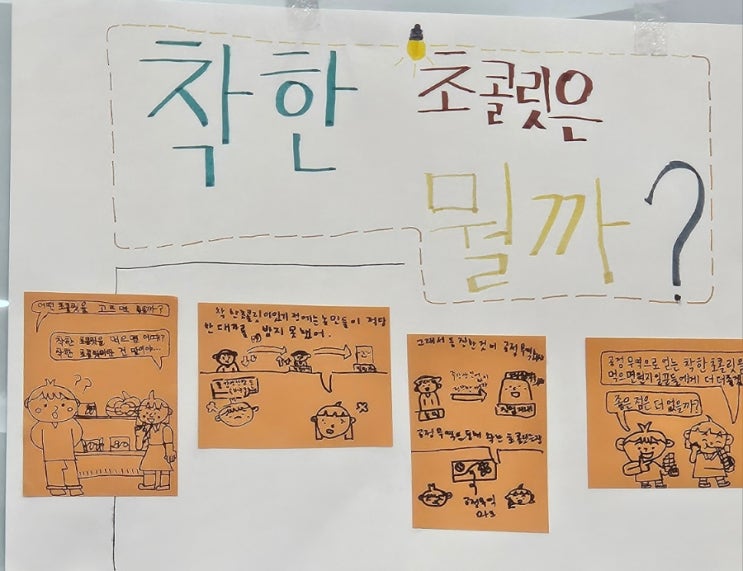 착한 초콜릿은
뭘까?
어떤 초콜릿을 고르면 좋을까?
착한 초콜릿을 먹으면 어떨까?
착한 초콜릿이란 건 말이야...
착한 초콜릿이 있기 전에는 농민들이 적당
한 대가를 받지 못했어.
그래서 등장한 것이 공정무역
공정무역을 통해 착한 초콜릿
공정무역
마크
공정무역으로 얻는 착한 초콜릿을
먹으면
더
좋은 점은 더 없을까?